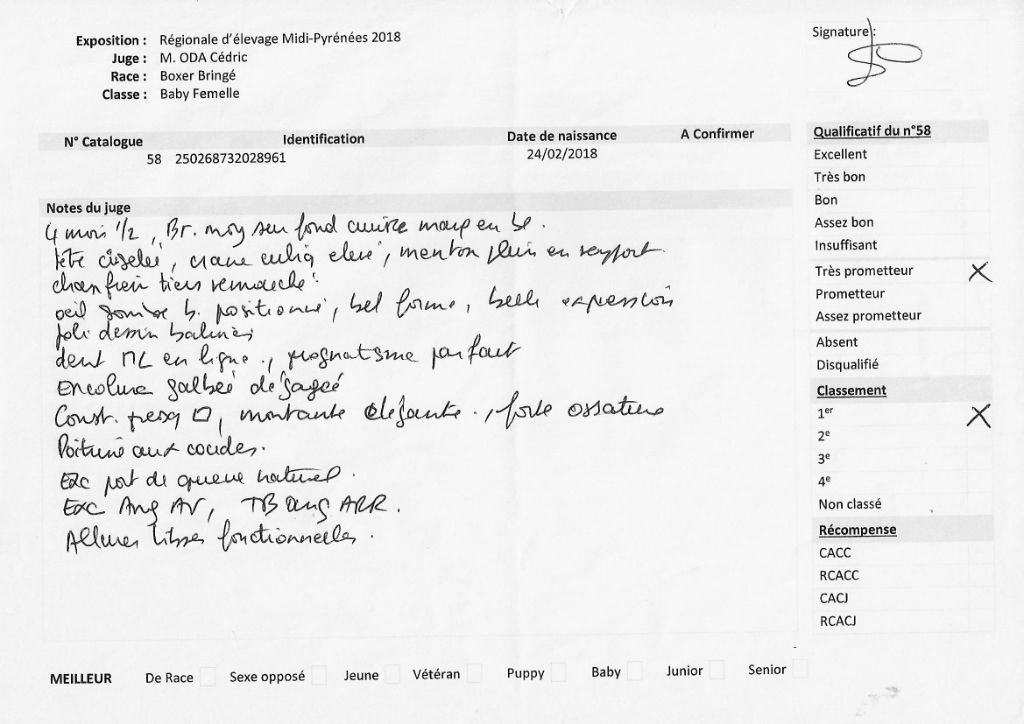 Exposition : Régionale d'élevage Midi-Pyrénées 2018
Juge : M. ODA Cédric
Race : Boxer Bringé
Classe : Baby Femelle
Signature :
N° Catalogue Identification Date de naissance A Confirmer
58 250268732028961 24/02/2018
Notes du juge
4 mois 1/2, Br. moy sur fond cuivre marq en bl.
tête ciselée, crane enliq elevé, menton plein en rapport
chanfrein tiers remarché
oeil sombre b. positionné, bel forme, belle expression
joli dessin babines
dent ML en ligne., prognatisme parfait
Encolure galbée dégagée
Const. presq □, montante élégante., forte ossature
Poitrine aux coudes.
Exc port de queue naturel.
Exc Ang AV, TB ang ARR.
Allures libres fonctionnelles.
Qualificatif du n°58
Excellent
Très bon
Bon
Assez bon
Insuffisant
Très prometteur X
Prometteur
Assez prometteur
Absent
Disqualifié
Classement
1er X
2e
3e
4e
Non classé
Récompense
CACC
RCACC
CACJ
RCACJ
MEILLEUR De Race Sexe opposé Jeune Vétéran Puppy Baby Junior Senior